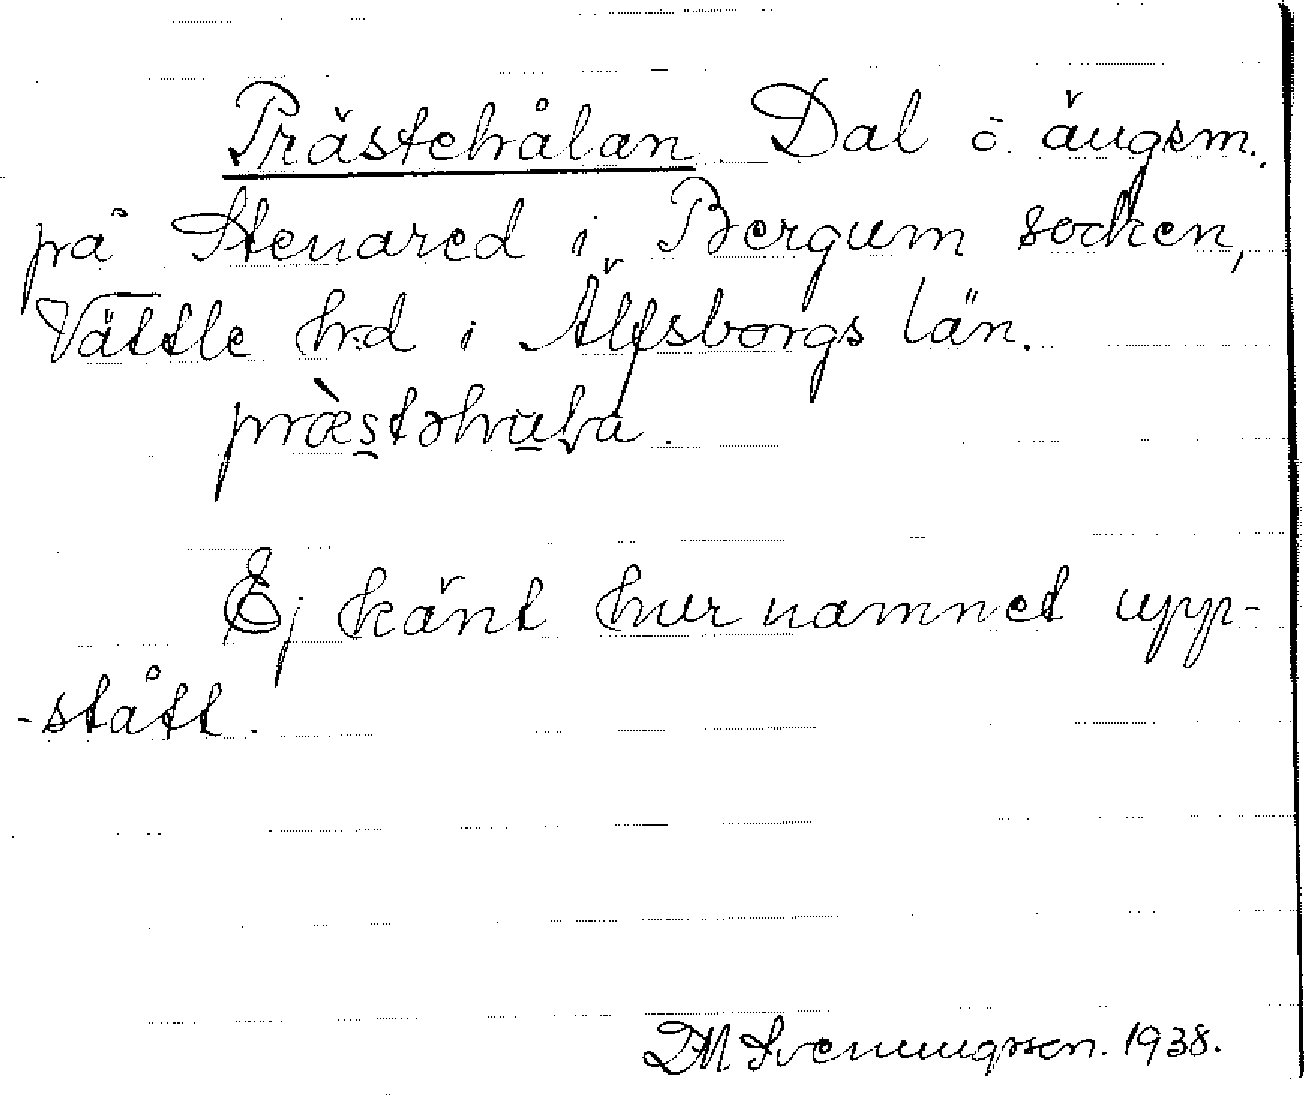 Prästehålan Dal o. ängsm.
på Stenared i Bergum socken,
Vättle hrd i Älfsborgs län.
Ej känt hur namnet upp-
-stått.
Svenningsson. 1938.